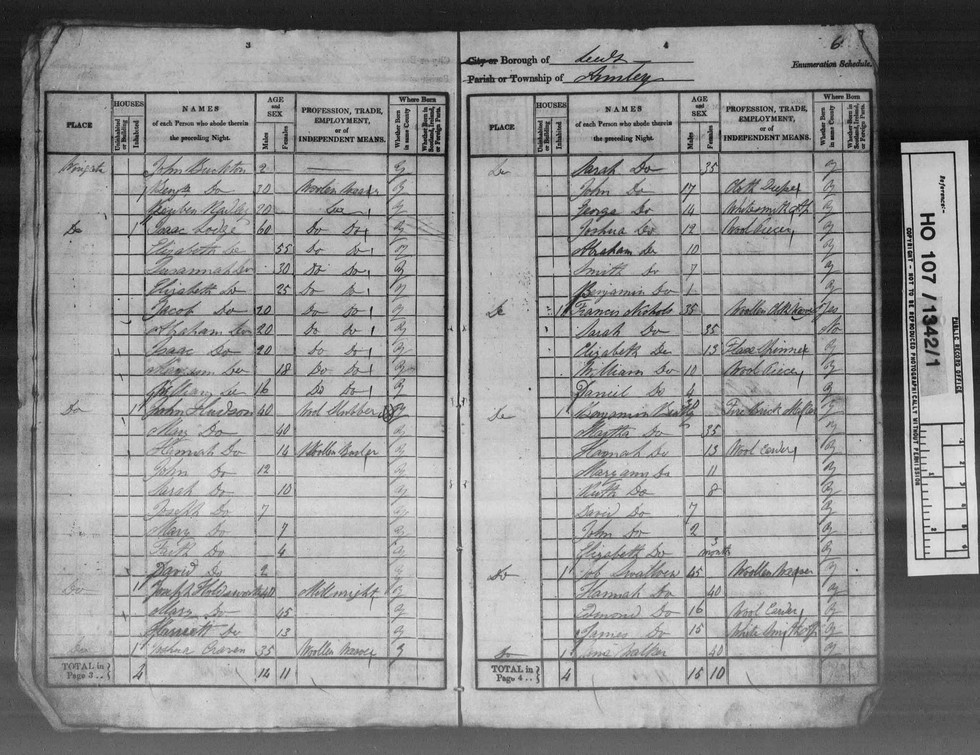 3
PLACE
HOUSES
Uninhabited or Building
Inhabited
NAMES
of each Person who abode therein
the preceding Night.
AGE and SEX
Males
Females
PROFESSION, TRADE,
EMPLOYMENT,
or of
INDEPENDENT MEANS.
Where Born
Whether Born in same County
Whether Born in Scotland, Ireland, or Foreign Parts.
John Buckton 2 — y
Do 30 Woollen Weaver y
Reuben 20 Do y
Do 1 Isaac Lodge 60 Do Do y
Elizabeth Do 55 Do Do y
Susannah Do 30 Do Do y
Elizabeth Do 25 Do Do y
Jacob Do 20 Do Do y
Abraham Do 20 Do Do y
Isaac Do 20 Do Do y
Do 18 Do Do y
William Do 16 Do Do y
Do 1 John Hudson 40 Wool Slubber y
Mary Do 40 y
Hannah Do 14 Woollen y
John Do 12 y
Sarah Do 10 y
Joseph Do 7 y
Mary Do 7 y
Do 4 y
David Do 2 y
Do 1 Joseph Holdsworth 40 Millwright y
Mary Do 45 y
Harriett Do 13 y
Do 1 Joshua Craven 35 Woollen Weaver y
TOTAL in Page 3 .. 4 14 11
4
6
City or Borough of Leeds
Parish or Township of Armley
Enumeration Schedule.
PLACE
HOUSES
Uninhabited or Building
Inhabited
NAMES
of each Person who abode therein
the preceding Night.
AGE and SEX
Males
Females
PROFESSION, TRADE,
EMPLOYMENT,
or of
INDEPENDENT MEANS.
Where Born
Whether Born in same County
Whether Born in Scotland, Ireland, or Foreign Parts.
Do Sarah Do 35 y
John Do 17 Cloth y
George Do 14 Whitesmith Ap y
Joshua Do 12 Wool Piecer y
Abraham Do 10 y
Smith Do 7 y
Benjamin Do 1 y
Do 1 Francis Nichols 35 Woollen Cloth Yes
Sarah Do 35 No
Elizabeth Do 13 Flax Spinner y
William Do 10 Wool Piecer y
Daniel Do 4 y
Do 1 Benjamin 30 Fire Brick Maker y
Martha Do 35 y
Hannah Do 13 Wool Carder y
Mary ann Do 11 y
Ruth Do 8 y
David Do 7 y
John Do 2 y
Elizabeth Do 3 month y
Do 1 Job Swallow 45 Woollen Weaver y
Hannah Do 40 y
Edmond Do 16 Wool Carder y
James Do 15 White Smith Ap y
Do 1 Walker 40 y
TOTAL in Page 4 .. 4 15 10
Reference:-
HO 107/1342/1
PUBLIC RECORD OFFICE
COPYRIGHT - NOT TO BE REPRODUCED PHOTOGRAPHICALLY WITHOUT PERMISSION